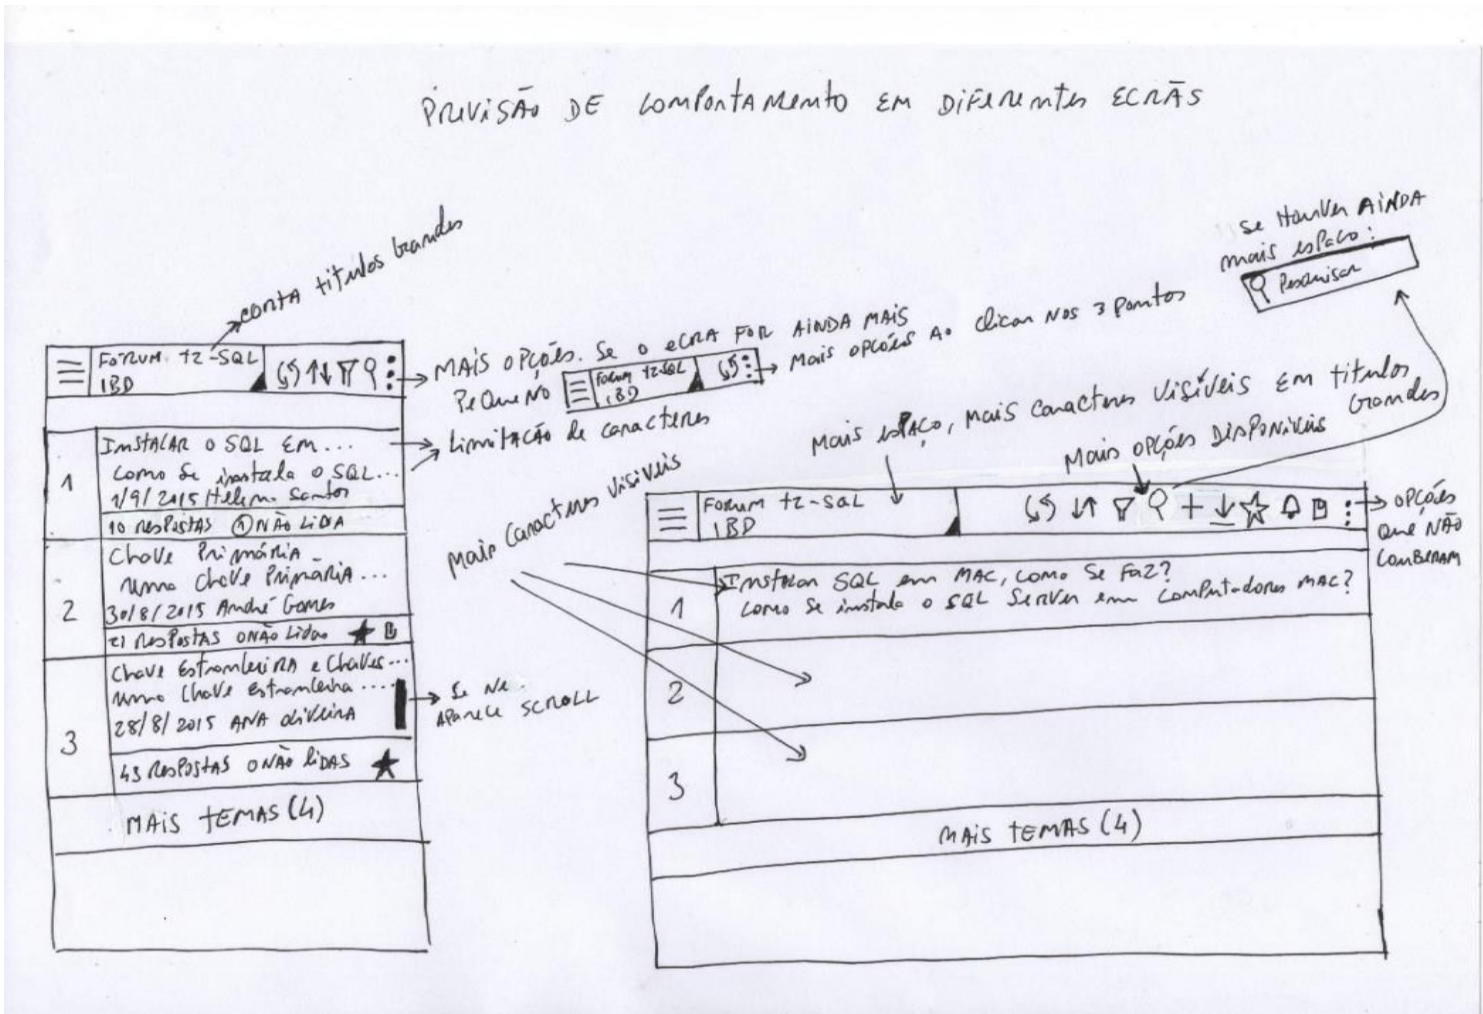 PREVISÃO DE COMPORTAMENTO EM DIFERENTES ECRÃS
CORTA TITULOS GRANDES
FORUM T2-SQL
IBD
MAIS OPÇÕES. SE O ECRA FOR AINDA MAIS
PEQUENO
FORUM T2-SQL
IBD
MAIS OPÇÕES AO CLICAR NOS 3 PONTOS
LIMITAÇÃO DE CARACTERES
1
INSTALAR O SQL EM...
COMO SE INSTALA O SQL...
1/9/2015 HELENA SANTOS
10 RESPOSTAS 1 NÃO LIDA
2
CHAVE PRIMÁRIA
UMA CHAVE PRIMÁRIA...
30/8/2015 ANDRÉ GOMES
21 RESPOSTAS 0 NÃO LIDAS
3
CHAVE ESTRANGEIRA E CHAVES...
UMA CHAVE ESTRANGEIRA....
28/8/2015 ANA OLIVEIRA
43 RESPOSTAS 0 NÃO LIDAS
SE
APARECE SCROLL
MAIS TEMAS (4)
MAIS CARACTERES VISIVEIS
SE HOUVER AINDA
MAIS ESPACO:
PESQUISAR
MAIS ESPAÇO, MAIS CARACTERES VISÍVEIS EM TITULOS
GRANDES
MAIS OPÇÕES DISPONIVEIS
FORUM T2-SQL
IBD
OPÇÕES
QUE NÃO
COUBERAM
1
INSTALAR SQL EM MAC, COMO SE FAZ?
COMO SE INSTALA O SQL SERVER EM COMPUTADORES MAC?
2
3
MAIS TEMAS (4)